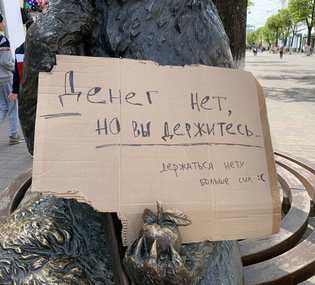 Денег нет,
но вы держитесь...
держаться нету
больше сил :(